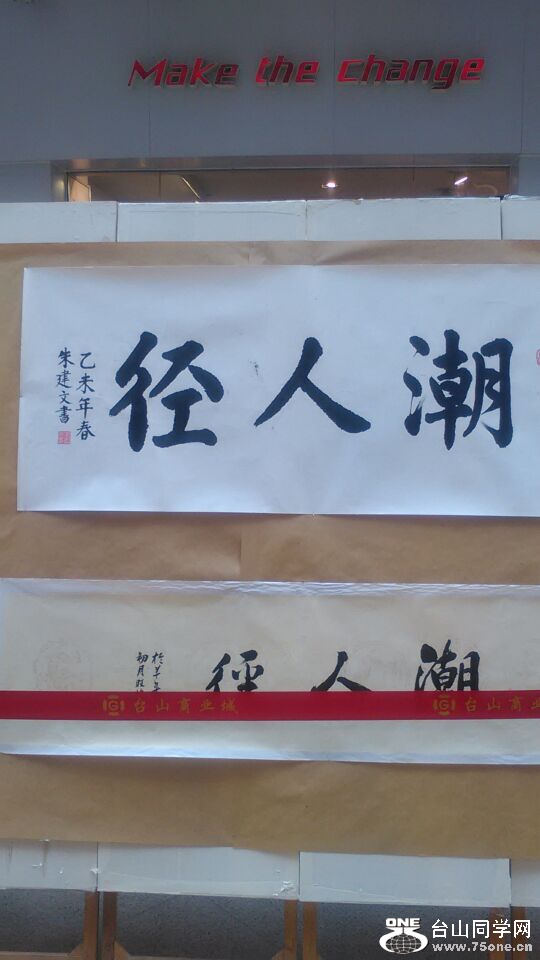 Make the change
潮人径
乙未年春
朱建文書
潮人徑
於羊年
初月
台山商业城
台山商业城
ONE
台山同学网
www.75one.cn